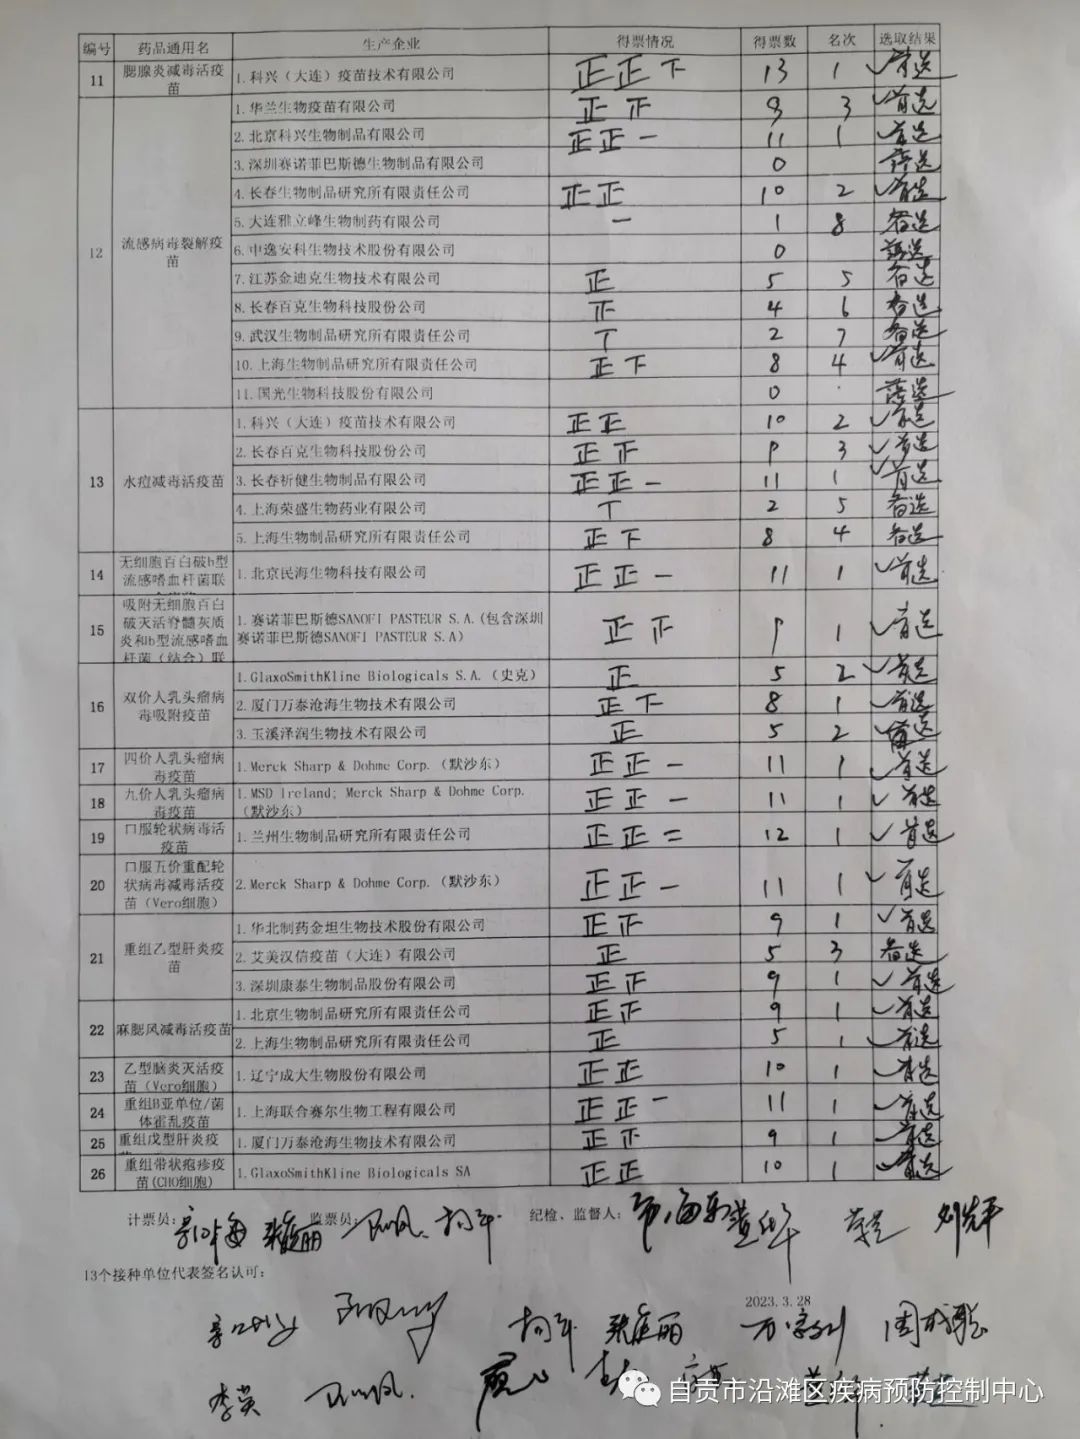 编号 药品通用名 生产企业 得票情况 得票数 名次 选取结果
11 腮腺炎减毒活疫苗 1.科兴（大连）疫苗技术有限公司 正正下 13 1 ✓首选
12 流感病毒裂解疫苗 1.华兰生物疫苗有限公司 9 3 ✓首选
2.北京科兴生物制品有限公司 正正一 11 1 ✓首选
3.深圳赛诺菲巴斯德生物制品有限公司 0 落选
4.长春生物制品研究所有限责任公司 正正 10 2 ✓首选
5.大连雅立峰生物制药有限公司 一 1 8 备选
6.中逸安科生物技术股份有限公司 0 落选
7.江苏金迪克生物技术有限公司 正 5 5 备选
8.长春百克生物科技股份公司 4 6 备选
9.武汉生物制品研究所有限责任公司 丅 2 7 备选
10.上海生物制品研究所有限责任公司 正下 8 4 ✓首选
11.国光生物科技股份有限公司 0 落选
13 水痘减毒活疫苗 1.科兴（大连）疫苗技术有限公司 正正 10 2 ✓首选
2.长春百克生物科技股份公司 9 3 ✓首选
3.长春祈健生物制品有限公司 正正一 11 1 ✓首选
4.上海荣盛生物药业有限公司 丅 2 5 备选
5.上海生物制品研究所有限责任公司 正下 8 4 备选
14 无细胞百白破b型流感嗜血杆菌联 1.北京民海生物科技有限公司 正正一 11 1 ✓首选
15 吸附无细胞百白破灭活脊髓灰质炎和b型流感嗜血杆菌（结合）联 1.赛诺菲巴斯德SANOFI PASTEUR S.A.(包含深圳赛诺菲巴斯德SANOFI PASTEUR S.A) 9 1 ✓首选
16 双价人乳头瘤病毒吸附疫苗 1.GlaxoSmithKline Biologicals S.A.（史克） 正 5 2 ✓首选
2.厦门万泰沧海生物技术有限公司 正下 8 1 ✓首选
3.玉溪泽润生物技术有限公司 正 5 2 ✓首选
17 四价人乳头瘤病毒疫苗 1.Merck Sharp & Dohme Corp.（默沙东） 正正一 11 1 ✓首选
18 九价人乳头瘤病毒疫苗 1.MSD Ireland; Merck Sharp & Dohme Corp.（默沙东） 正正一 11 1 ✓首选
19 口服轮状病毒活疫苗 1.兰州生物制品研究所有限责任公司 正正二 12 1 ✓首选
20 口服五价重配轮状病毒减毒活疫苗（Vero细胞） 2.Merck Sharp & Dohme Corp.（默沙东） 正正一 11 1 ✓首选
21 重组乙型肝炎疫苗 1.华北制药金坦生物技术股份有限公司 9 1 ✓首选
2.艾美汉信疫苗（大连）有限公司 正 5 3 备选
3.深圳康泰生物制品股份有限公司 9 1 ✓首选
22 麻腮风减毒活疫苗 1.北京生物制品研究所有限责任公司 9 1 ✓首选
2.上海生物制品研究所有限责任公司 正 5 1 ✓首选
23 乙型脑炎灭活疫苗（Vero细胞） 1.辽宁成大生物股份有限公司 正正 10 1 ✓首选
24 重组B亚单位/菌体霍乱疫苗 1.上海联合赛尔生物工程有限公司 正正一 11 1 ✓首选
25 重组戊型肝炎疫 1.厦门万泰沧海生物技术有限公司 9 1 ✓首选
26 重组带状疱疹疫苗(CHO细胞) 1.GlaxoSmithKline Biologicals SA 正正 10 1 ✓首选
计票员: 张庭丽 监票员: 纪检、监督人:
13个接种单位代表签名认可:
2023.3.28
张庭丽
李英
自贡市沿滩区疾病预防控制中心